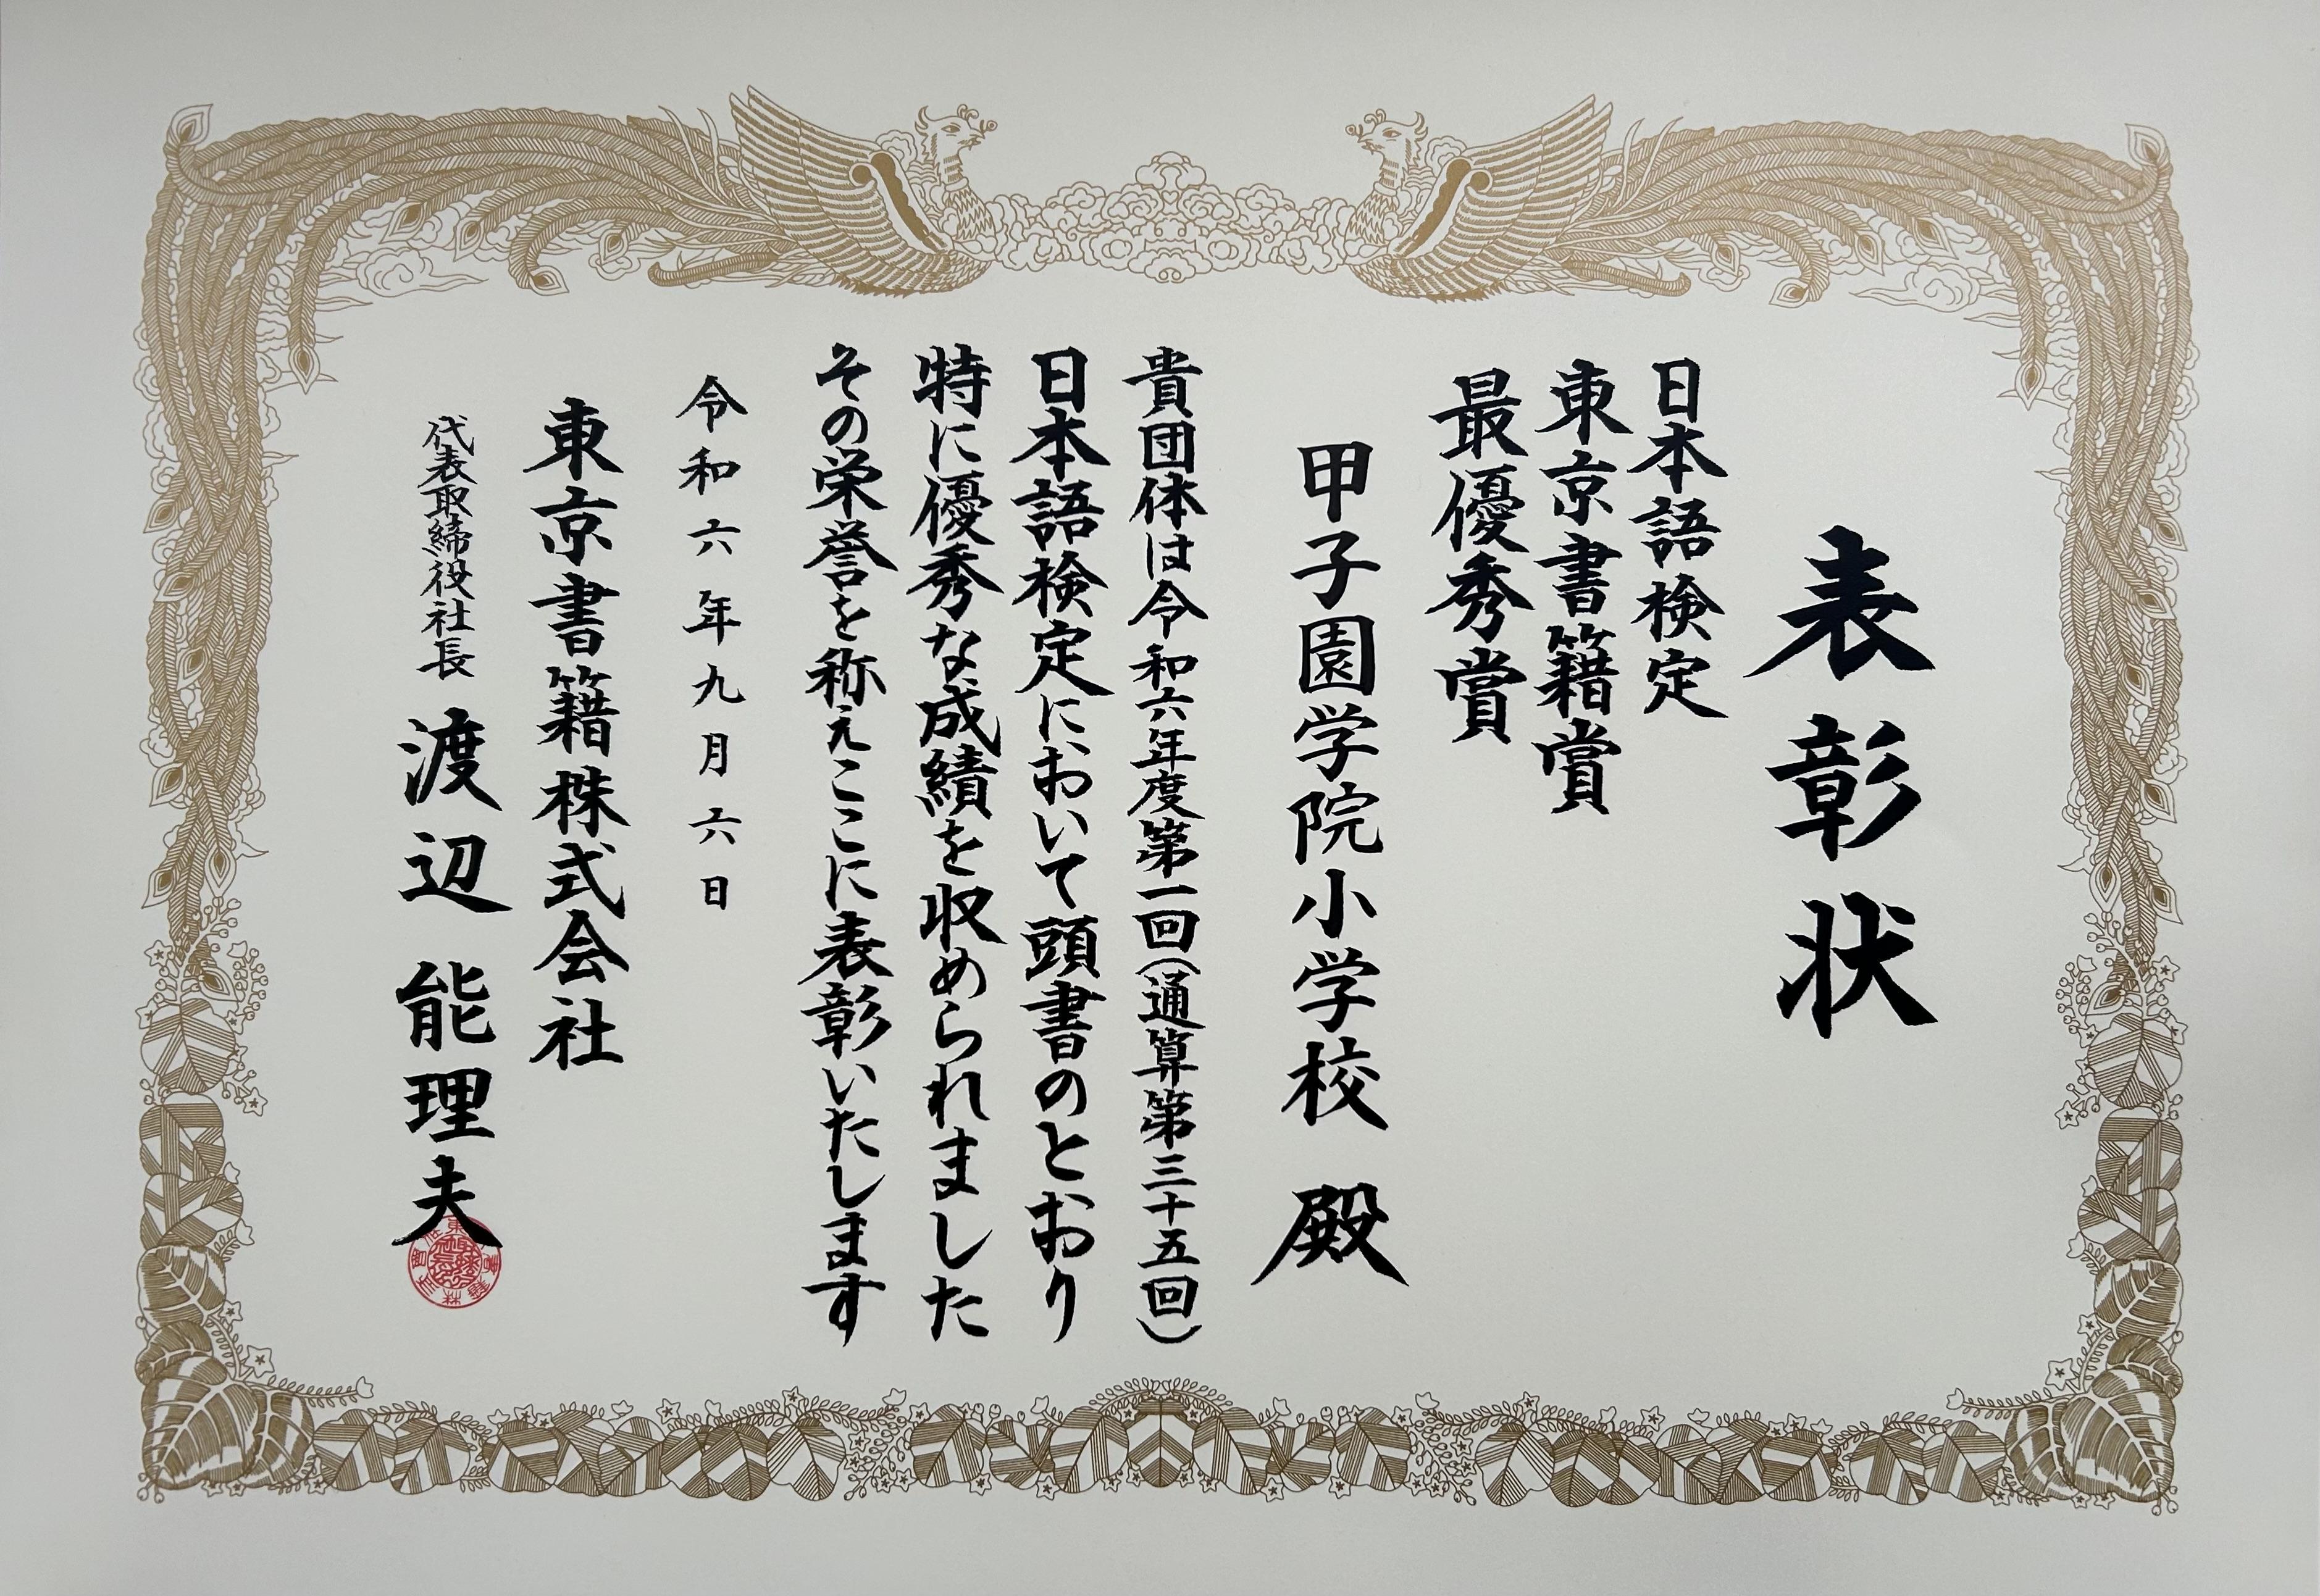 表彰状
日本語検定
東京書籍賞
最優秀賞
甲子園学院小学校 殿
貴団体は令和六年度第一回(通算第三十五回)
日本語検定において頭書のとおり
特に優秀な成績を収められました
その栄誉を称えここに表彰いたします
令和六年九月六日
東京書籍株式会社
代表取締役社長 渡辺能理夫